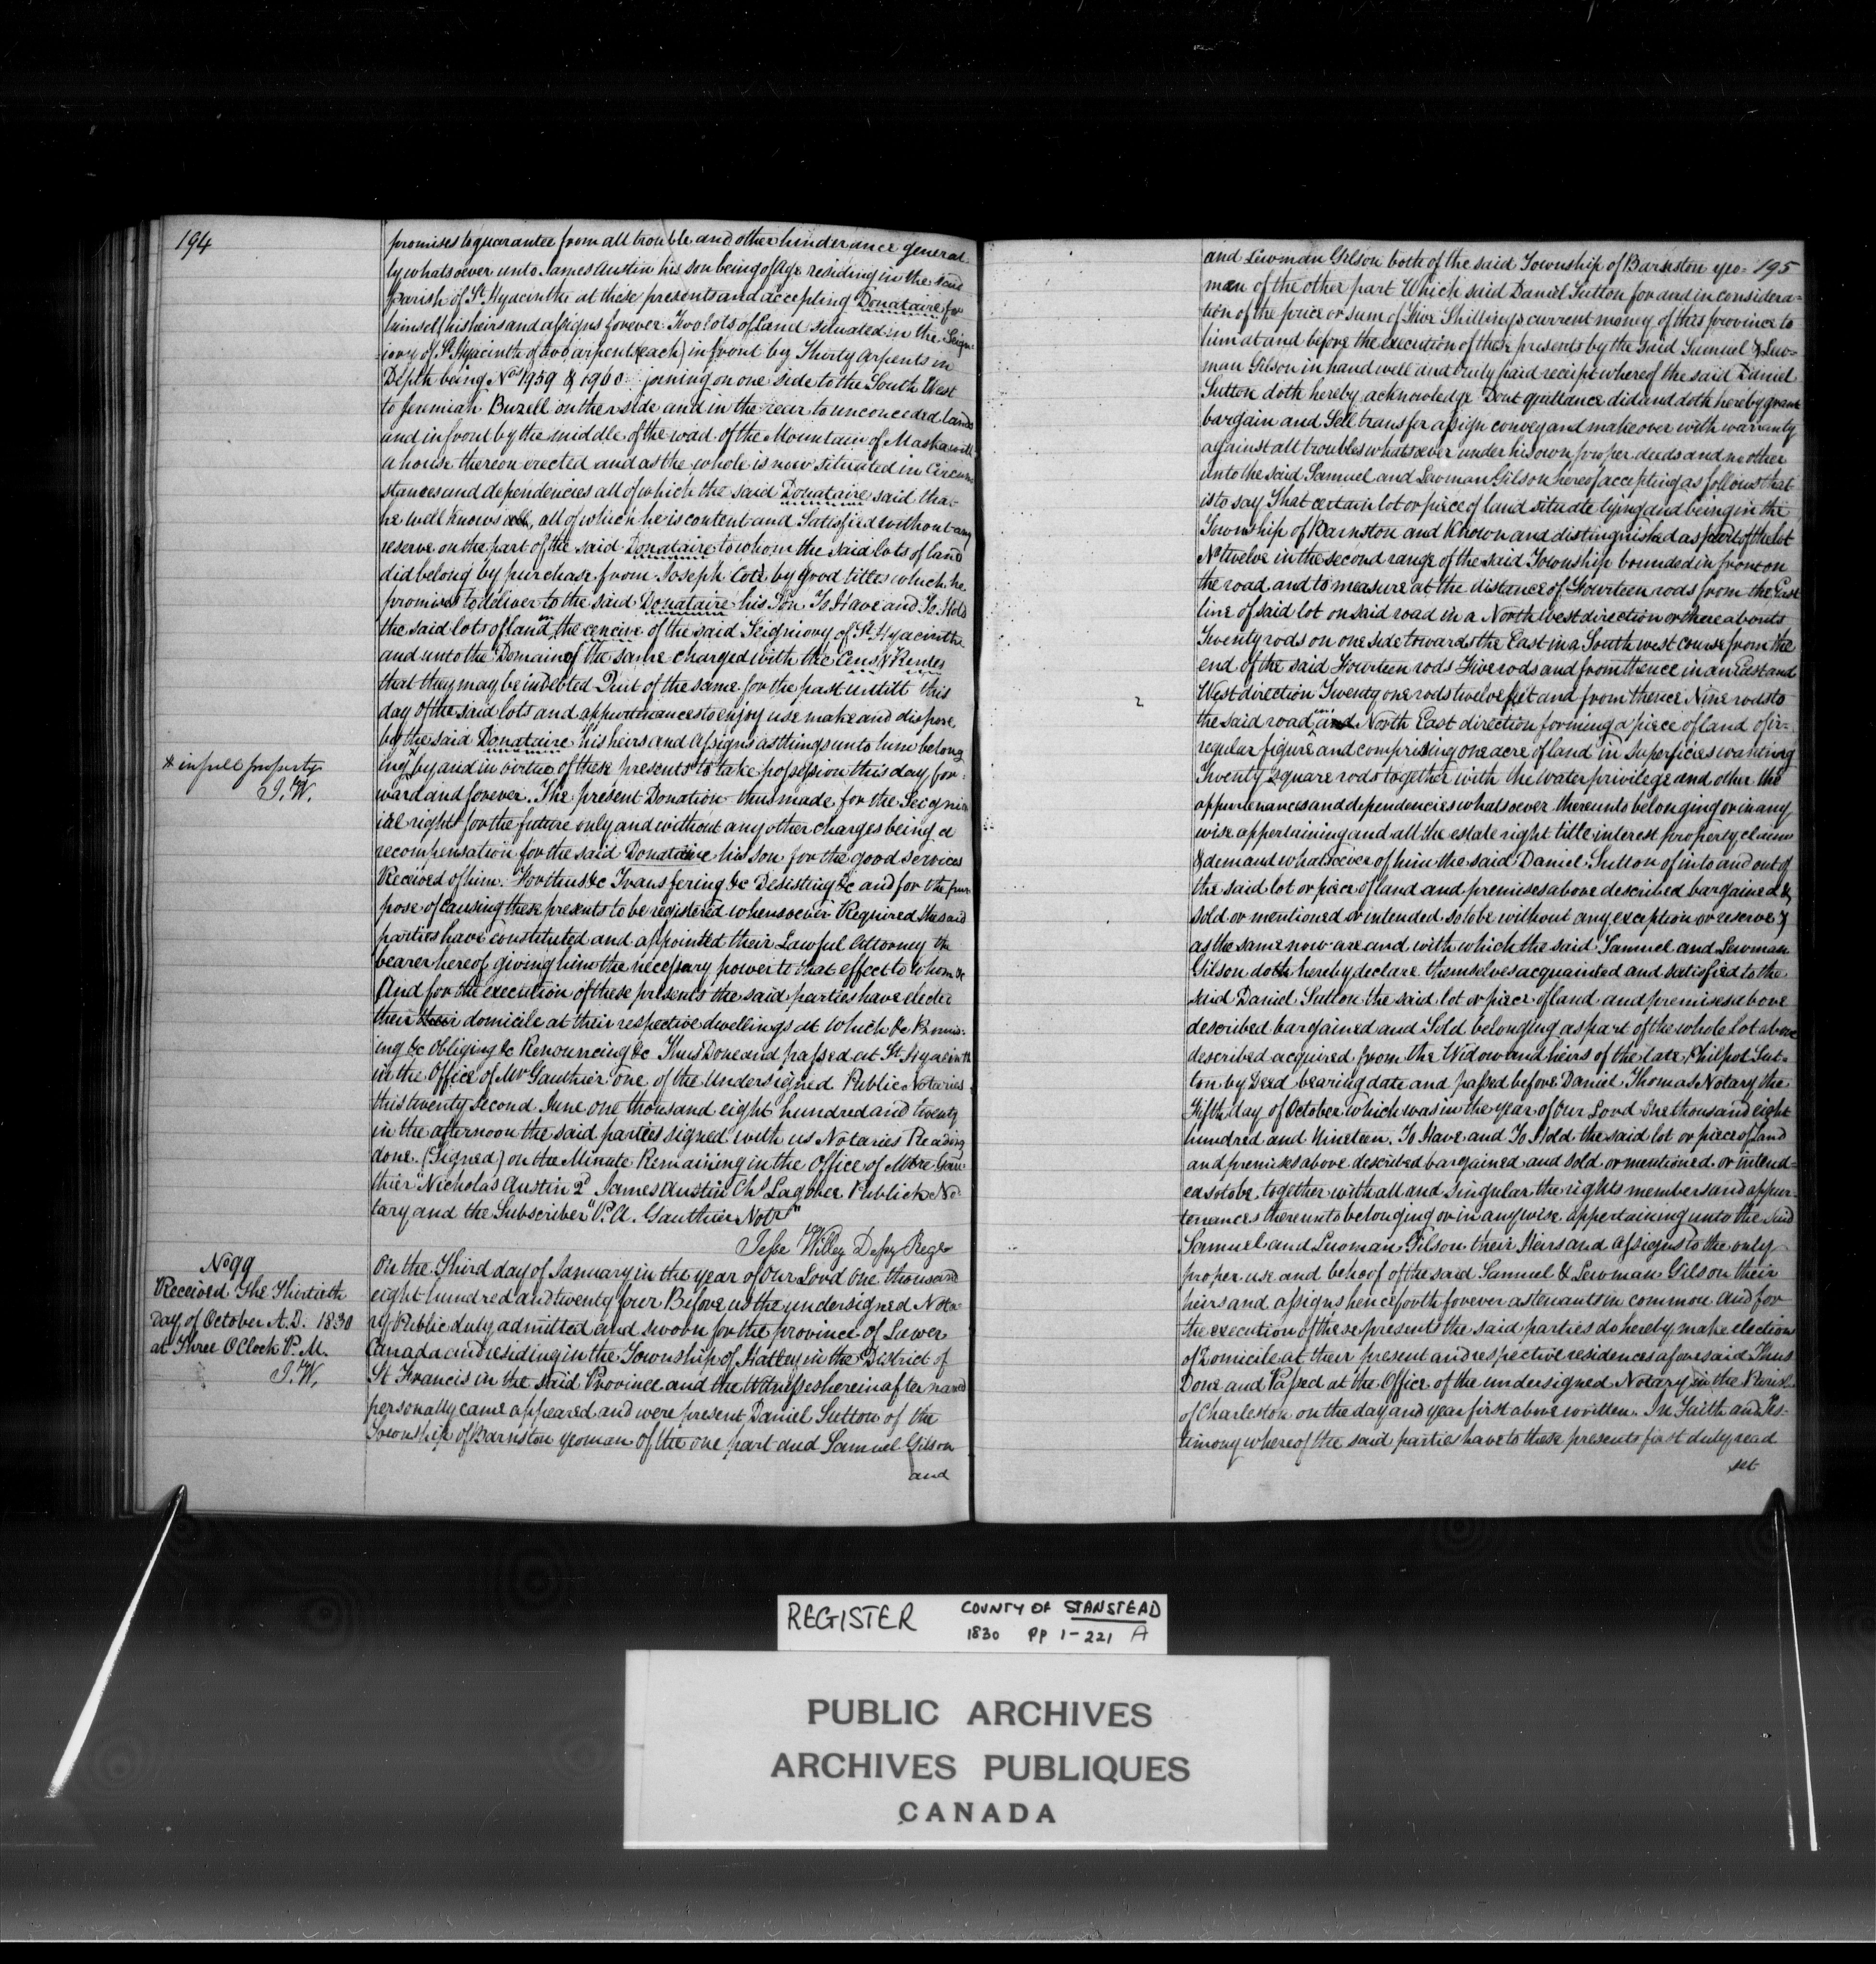 194
promises to guarantee from all trouble and other hinderance general-
ly whatsoever unto James Austin his son being of Age residing in the said
parish of St Hyacinthe at these presents and accepting Donataire for
himself his heirs and assigns forever Two lots of Land situated in the Seign-
iory of St Hyacinthe of two arpents (each) in front by Thirty Arpents in
Depth being Nos 1959 & 1960 joining on one side to the South West
to Jeremiah Buzell on ther side and in the rear to unconceded lands
and in front by the middle of the road of the Mountain of Maska with
a house thereon erected and as the whole is now situated in Circum
stances and dependencies all of which the said Donataire said that
he well knows all of which he is content and Satisfied without any
reserve on the part of the said Donataire to whom the said lots of land
did belong by purchase from Joseph Coté by good titles which he
promises to deliver to the said Donataire his Son To Have and To Hold
the said lots of land in the cencive of the said Seigniory of St Hyacinthe
and unto the Domain of the same charged with the Cens & Rentes
that they may be indebted Quit of the same for the past untill this
day of the said lots and appurtenances to enjoy use make and dispose
by the said Donataire his heirs and Assigns as things unto him belong
ing * by and in virtue of these presents to take possession this day for-
ward and forever. The present Donation thus made for the Seignio
ial rights for the future only and without any other charges being a
recompensation for the said Donataire his son for the good services
Received of him. For thus &c Transfering &c Desisting &c and for the pur
pose of causing these presents to be registered whensoever Required the said
parties have constituted and appointed their Lawful Attorney the
bearer hereof giving him the necessary power to that effect to whom &c
And for the execution of these presents the said parties have elected
their their domicile at their respective dwellings at Which &c Promis-
ing &c Obliging &c Renouncing &c Thus Done and passed at St Hyacinth
in the Office of Mr Gauthier one of the Undersigned Public Notaries
this twenty second June one thousand eight hundred and twenty
in the afternoon the said parties signed with us Notaries Reading
done. (Signed) on the Minute Remaining in the Office of Mtre Gau
thier "Nicholas Austin 2d James Austin Chs Lagorce Publick No-
tary and the Subscriber "P. A. Gauthier Notr"
Jesse Willey Depy Regr
* in full property
J. W.
No 99
Received The Thirtieth
Day of October A.D. 1830
at Three OClock P. M.
J. W.
On the Third day of January in the year of Our Lord One thousand
eight hundred and twenty four Before us the undersigned Nota-
ry Public duly admitted and sworn for the province of Lower
Canada and residing in the Township of Hatley in the District of
St Francis in the said Province and the Witnesses hereinafter named
personally came appeared and were present Daniel Sutton of the
Township of Barnston yeoman of the one part and Samuel Gilson
and
195
and Lewman Gilson both of the said Township of Barnston yeo-
man of the other part Which said Daniel Sutton for and in considera-
tion of the price or sum of Five Shillings current money of this province to
him at and before the execution of these presents by the said Samuel & Lew-
man Gilson in hand well and truly paid receipt whereof the said Daniel
Sutton doth hereby acknowledge Dont quittance did and doth hereby grant
bargain and Sell transfer assign convey and make over with warranty
against all troubles whatsoever under his own proper deeds and no other
unto the said Samuel and Lewman Gilson hereof accepting as follows that
is to say That certain lot or piece of land situate lying and being in the
Township of Barnston and Known and distinguished as part of the lot
No twelve in the second range of the said Township bounded in front on
the road and to measure at the distance of Fourteen rods from the East
line of said lot on said road in a North west direction or thereabouts
Twenty rods on one side towards the East in a South west course from the
end of the said Fourteen rods Five rods and from thence in an East and
West direction Twenty one rods twelve feet and from thence Nine rods to
the said road in and North East direction forming a piece of land of ir-
regular figure and comprising one acre of land in Superficies wanting
Twenty square rods together with the Water privilege and other the
appurtenances and dependencies whatsoever thereunto belonging or in any
wise appertaining and all the estate right title interest property claim
& demand whatsoever of him the said Daniel Sutton of in to and out of
the said lot or piece of land and premises above described bargained &
sold or mentioned or intended so to be without any exception or reserve &
as the same now are and with which the said Samuel and Lewman
Gilson doth hereby declare themselves acquainted and satisfied to the
said Daniel Sutton the said lot or piece of land and premises above
described bargained and Sold belonging as part of the whole Lot above
described acquired from the Widow and heirs of the late Philpot Sut-
ton by Deed bearing date and passed before Daniel Thomas Notary the
Fifth day of October which was in the year of Our Lord One thousand eight
hundred and Nineteen. To Have and To Hold the said lot or piece of Land
and premises above described bargained and sold or mentioned or intend-
ed so to be together with all and singular the rights members and appur-
tenances thereunto belonging or in any wise appertaining unto the said
Samuel and Lewman Gilson their Heirs and Assigns to the only
proper use and behoof of the said Samuel & Lewman Gilson their
heirs and assigns henceforth forever as tenants in common and for
the execution of these presents the said parties do hereby make election
of Domicile at their present and respective residences aforesaid Thus
Done and Passed at the Office of the undersigned Notary in the Parish
of Charleston on the day and year first above written. In Faith and Tes-
timony whereof the said parties have to these presents first duly read
set
REGISTER COUNTY OF STANSTEAD
1830 PP 1-221 A
PUBLIC ARCHIVES
ARCHIVES PUBLIQUES
CANADA